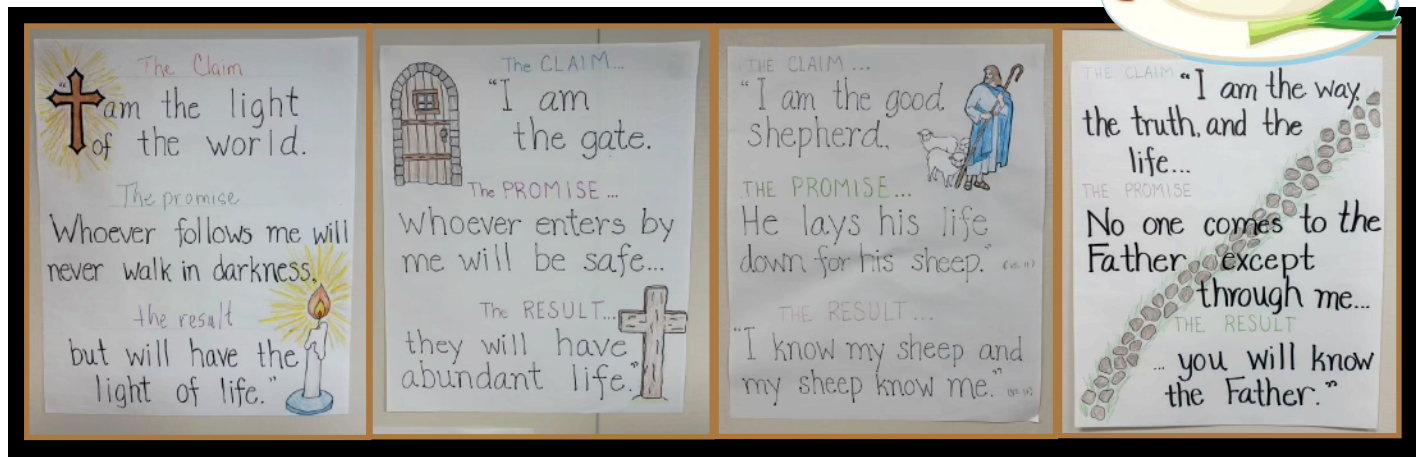 The Claim
"I am the light
of the world.
The promise
Whoever follows me will
never walk in darkness,
the result
but will have the
light of life."
The CLAIM...
"I am
the gate.
The PROMISE...
Whoever enters by
me will be safe...
The RESULT...
they will have
abundant life."
THE CLAIM...
"I am the good
shepherd.
THE PROMISE...
He lays his life
down for his sheep."
THE RESULT...
"I know my sheep and
my sheep know me."
THE CLAIM
"I am the way,
the truth, and the
life...
THE PROMISE
No one comes to the
Father except
through me...
THE RESULT
... you will know
the Father."